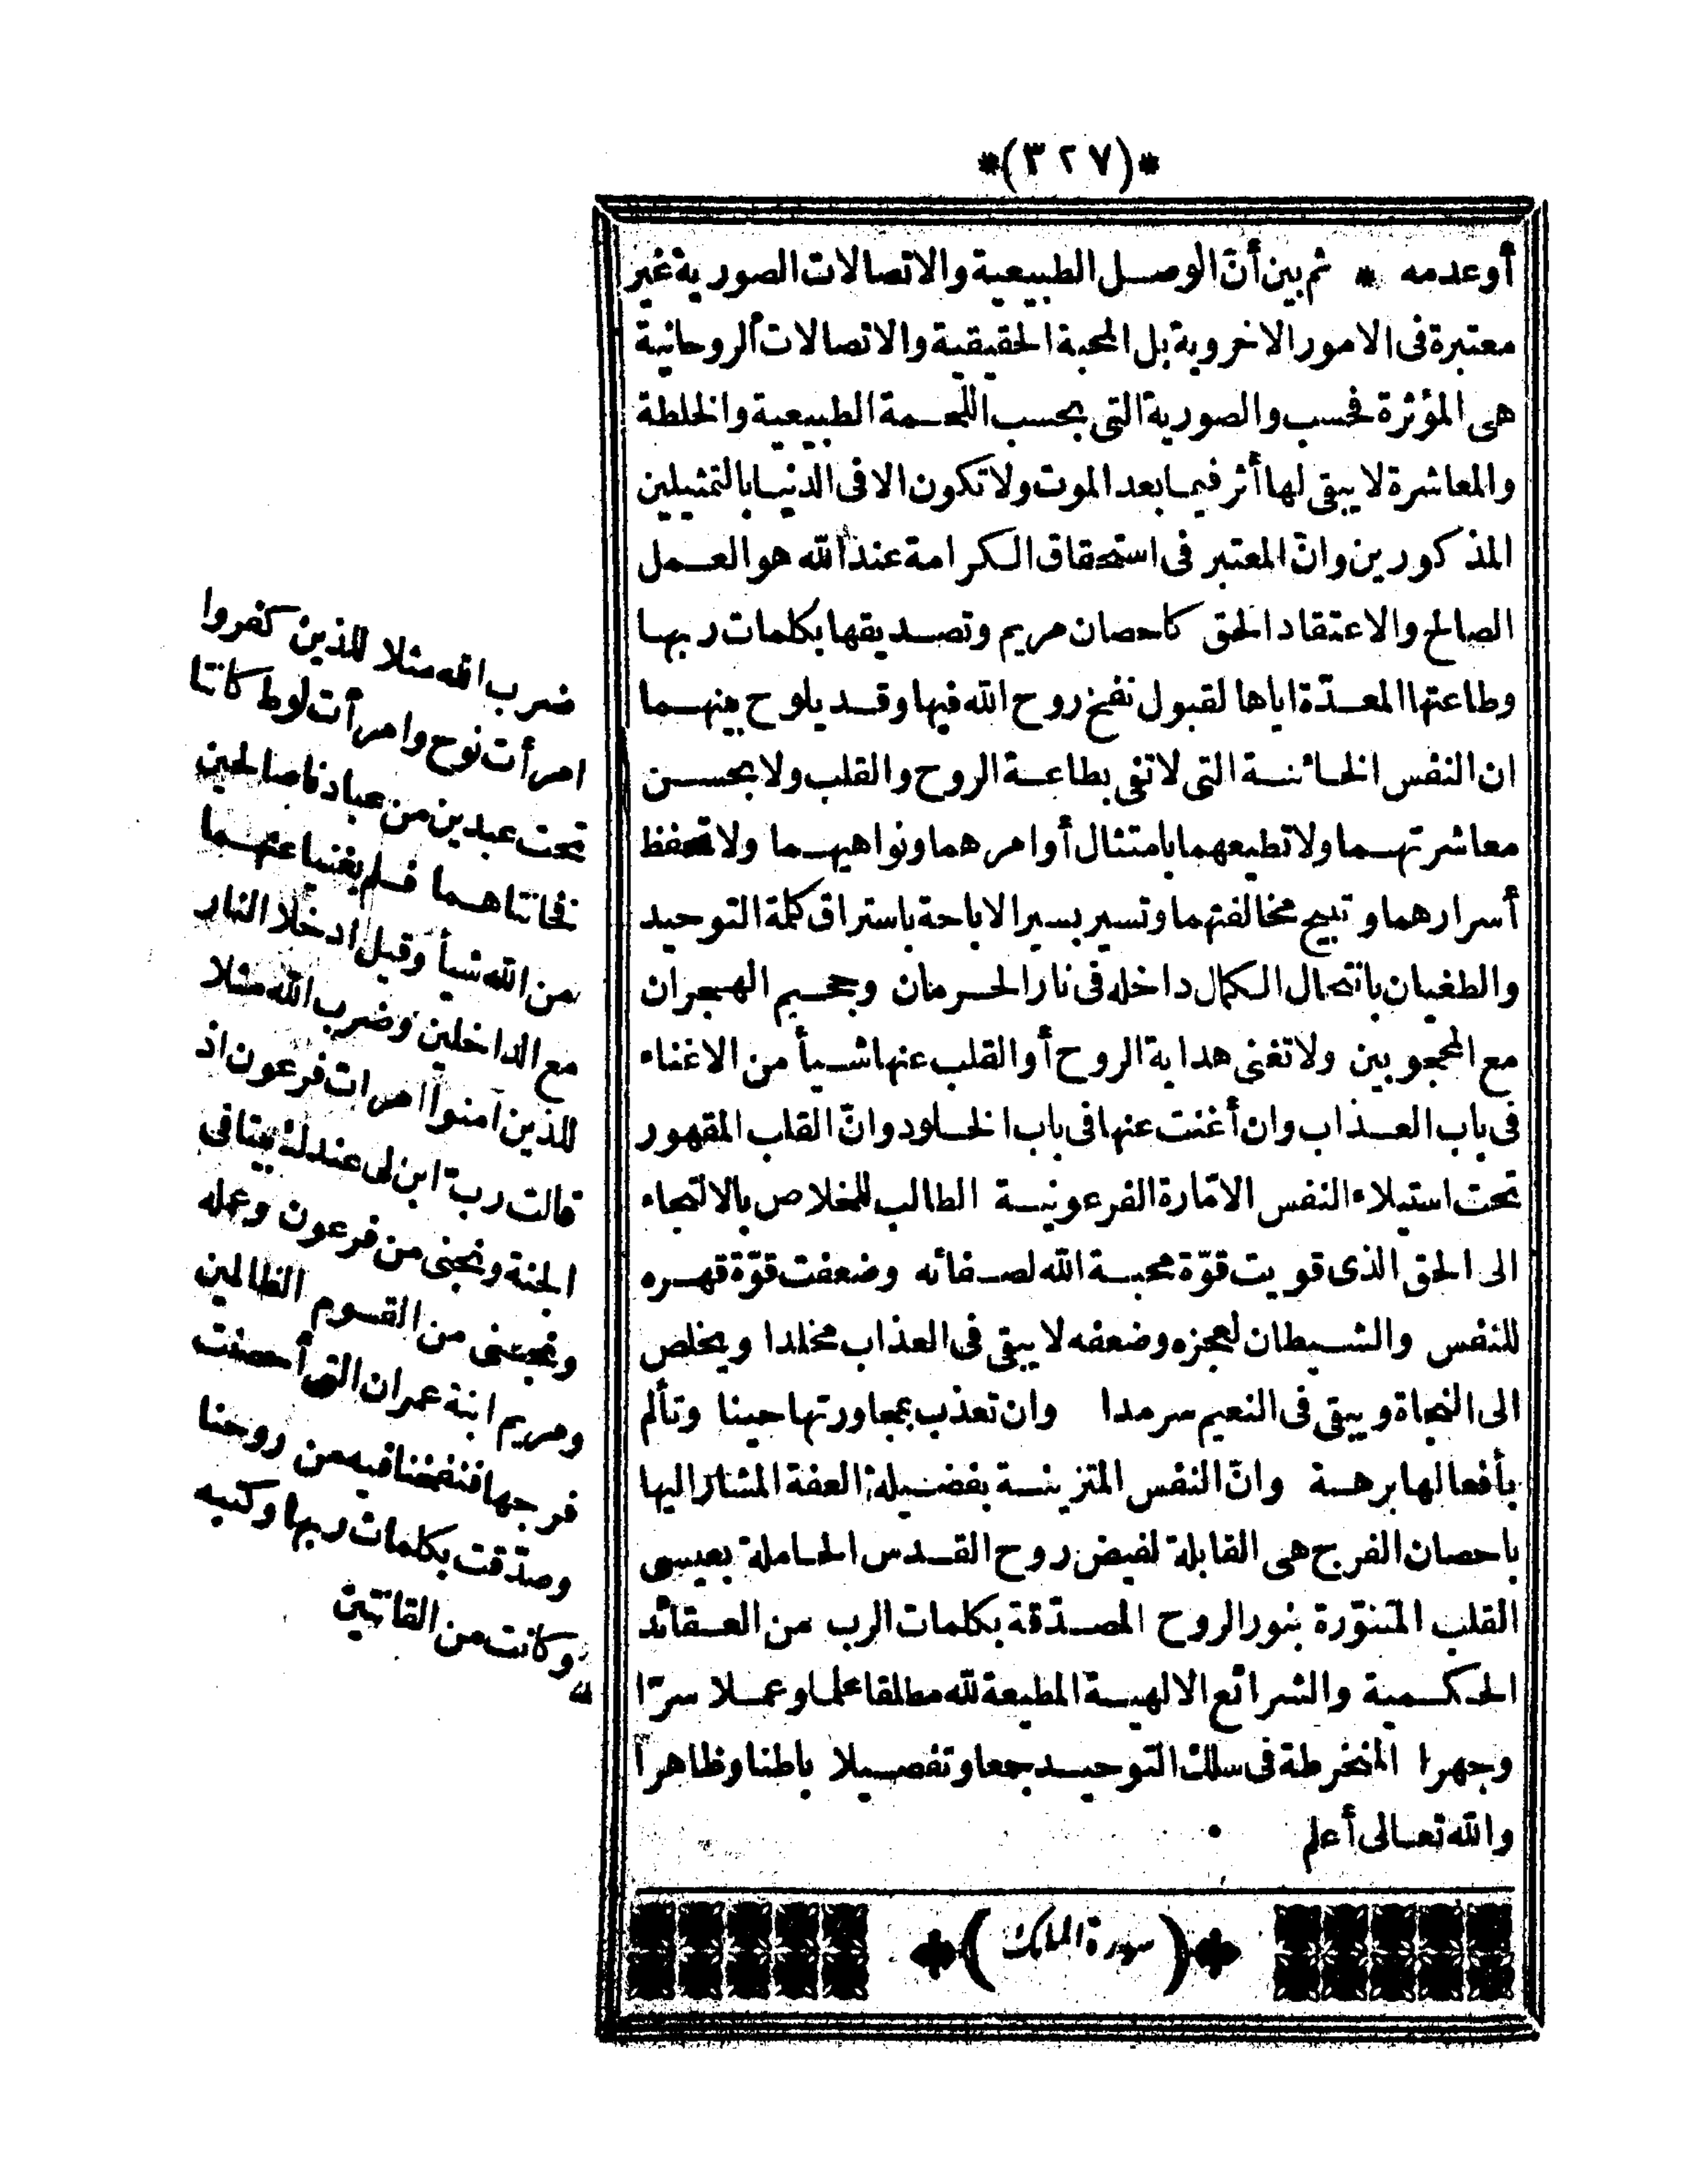 *(٣٢٧)*
أو عدمه * ثم بين أنّ الوصل الطبيعية والاتصالات الصورية غير
معتبرة فى الامور الاخروية بل المحبة الحقيقية والاتصالات الروحانية
هى المؤثرة فحسب والصورية التى بحسب اللحمة الطبيعية والخلطة
والمعاشرة لا يبقى لها أثر فيما بعد الموت ولا تكون الا فى الدنيا بالتمثيلين
المذكورين وانّ المعتبر فى استحقاق الكرامة عند الله هو العمل
الصالح والاعتقاد الحق كاحصان مريم وتصديقها بكلمات ربها
وطاعتها المعدّة اياها لقبول نفخ روح الله فيها وقد يلوح بينهما
ان النفس الخائنة التى لا تفى بطاعة الروح والقلب ولا بحسن
معاشرتهما ولا تطيعهما بامتثال أوامرهما ونواهيهما ولا تحفظ
أسرارهما وتبيح مخالفتهما وتسير بسير الاباحة باستراق كلمة التوحيد
والطغيان بانتحال الكمال داخله فى نار الحرمان وجحيم الهجران
مع المحجوبين ولا تغنى هداية الروح أو القلب عنها شيأ من الاغناء
فى باب العذاب وان أغنت عنها فى باب الخلود وانّ القلب المقهور
تحت استيلاء النفس الامّارة الفرعونية الطالب للخلاص بالالتجاء
الى الحق الذى قويت قوّة محبة الله لصفائه وضعفت قوّة قهره
للنفس والشيطان لعجزه وضعفه لا يبقى فى العذاب مخلدا ويخلص
الى النجاة ويبقى فى النعيم سرمدا وان تعذب بمجاورتها حينا وتألم
بأفعالها برهة وانّ النفس المتزينة بفضيلة العفة المشار اليها
باحصان الفرج هى القابلة لفيض روح القدس الحاملة بعيسى
القلب المتنوّرة بنور الروح المصدّقة بكلمات الرب من العقائد
الحكمية والشرائع الالهية المطيعة لله مطلقا علما وعملا سرّا
وجهرا المنخرطة فى سلك التوحيد جمعا وتفصيلا باطنا وظاهرا
والله تعالى أعلم
(سورة الملك)
ضرب الله مثلا للذين كفروا
امرأت نوح وامرأت لوط كانتا
تحت عبدين من عبادنا صالحين
فخانتاهما فلم يغنيا عنهما
من الله شيأ وقيل ادخلا النار
مع الداخلين وضرب الله مثلا
للذين آمنوا امرات فرعون اذ
قالت رب ابن لى عندك بيتا فى
الجنة ونجنى من فرعون وعمله
ونجنى من القوم الظالمين
ومريم ابنة عمران التى أحصنت
فرجها فنفخنا فيه من روحنا
وصدّقت بكلمات ربها وكتبه
وكانت من القانتين